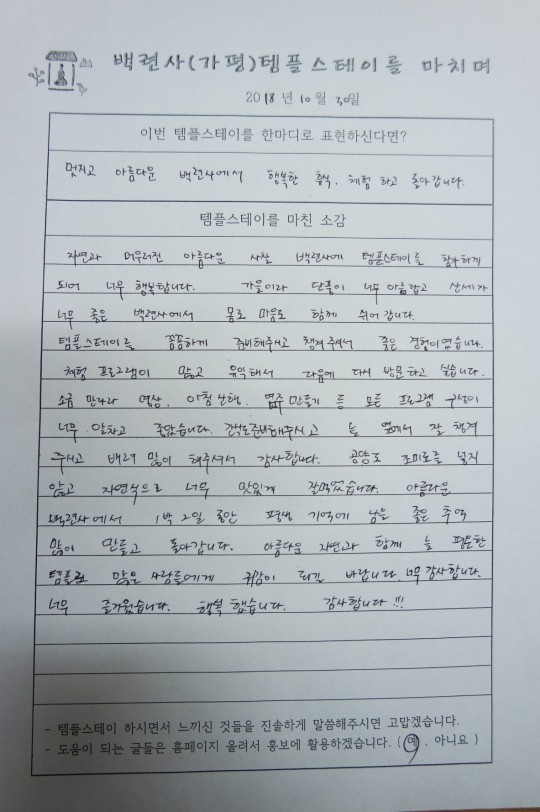 백련사(가평)템플스테이를 마치며
2018년 10월 30일
이번 템플스테이를 한마디로 표현하신다면?
멋지고 아름다운 백련사에서 행복한 휴식, 체험 하고 돌아갑니다.
템플스테이를 마친 소감
자연과 어우러진 아름다운 사찰 백련사에 템플스테이를 참가하게
되어 너무 행복합니다. 가을이라 단풍이 너무 아름답고 산세가
너무 좋은 백련사에서 몸도 마음도 함께 쉬어갑니다.
템플스테이를 꼼꼼하게 준비해주시고 챙겨주셔서 좋은 경험이었습니다.
체험 프로그램이 많고 유익해서 다음에 다시 방문하고 싶습니다.
소금 만다라 명상, 아침 산행, 염주만들기 등 모든 프로그램 구성이
너무 알차고 좋았습니다. 간식도준비해주시고 늘 옆에서 잘 챙겨
주시고 배려 많이 해주셔서 감사합니다. 공양도 조미료를 넣지
않고 자연식으로 너무 맛있게 잘먹었습니다. 아름다운
백련사에서 1박2일 동안 평생 기억에 남을 좋은 추억
많이 만들고 돌아갑니다. 아름다운 자연과 함께 늘 평온한
템플로 많은 사람들에게 귀감이 되길 바랍니다. 너무 감사합니다.
너무 즐거웠습니다. 행복 했습니다. 감사합니다!!!
- 템플스테이 하시면서 느끼신 것들을 진솔하게 말씀해주시면 고맙겠습니다.
- 도움이 되는 글들은 홈페이지 올려서 홍보에 활용하겠습니다. ( 예 . 아니요 )